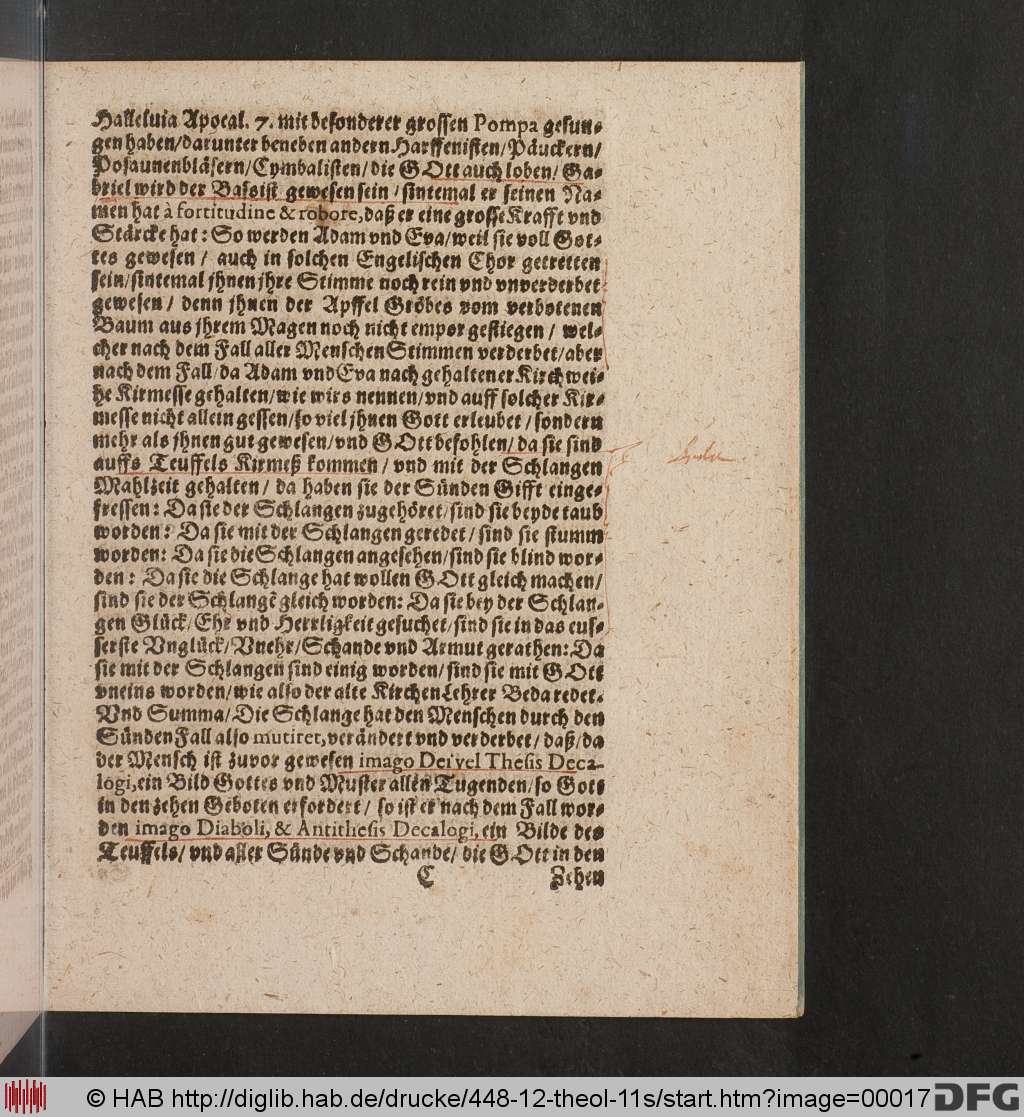 Halleluia Apocal. 7. mit besonderer grossen Pompa gesun-
gen haben/darunter beneben andern Harffenisten/Päuckern/
Posaunenbläsern/Cymbalisten/die GOtt auch loben/ Ga-
briel wird der Bassist gewesen sein / sintemal er seinen Na-
men hat à fortitudine & robore, daß er eine grosse Krafft vnd
Stärcke hat: So werden Adam vnd Eva/weil sie voll Got-
tes gewesen / auch in solchen Engelischen Chor getretten
sein/sintemal jhnen jhre Stimme noch rein vnd vnverderbet
gewesen / denn jhnen der Apffel Gröbes vom verbotenen
Baum aus jhrem Magen noch nicht empor gestiegen / wel-
cher nach dem Fall aller Menschen Stimmen verderbet/aber
nach dem Fall/da Adam vnd Eva nach gehaltener Kirchwei-
he Kirmesse gehalten/wie wirs nennen/vnd auff solcher Kir-
messe nicht allein gessen/so viel jhnen Gott erleubet / sondern
mehr als jhnen gut gewesen/vnd GOtt befohlen/ da sie sind
auffs Teuffels Kirmeß kommen / vnd mit der Schlangen
Mahlzeit gehalten / da haben sie der Sünden Gifft einge-
fressen: Da sie der Schlangen zugehöret/sind sie beyde taub
worden: Da sie mit der Schlangen geredet / sind sie stumm
worden: Da sie die Schlangen angesehen/sind sie blind wor-
den: Da sie die Schlange hat wollen GOtt gleich machen/
sind sie der Schlangẽ gleich worden: Da sie bey der Schlan-
gen Glück/Ehr vnd Herrligkeit gesuchet/sind sie in das eus-
serste Vnglück/Vnehr/Schande vnd Armut gerathen: Da
sie mit der Schlangen sind einig worden/sind sie mit GOtt
vneins worden/wie also der alte KirchenLehrer Beda redet.
Vnd Summa/Die Schlange hat den Menschen durch den
SündenFall also mutiret, verändert vnd verderbet/ daß/da
der Mensch ist zuvor gewesen imago Dei vel Thesis Deca-
logi, ein Bild Gottes vnd Muster allen Tugenden/so Gott
in den zehen Geboten erfordert / so ist er nach dem Fall wor-
den imago Diaboli, & Antithesis Decalogi, ein Bilde des
Teuffels/ vnd aller Sünde vnd Schande/ die GOtt in den
C Zehen
© HAB http://diglib.hab.de/drucke/448-12-theol-11s/start.htm?image=00017
DFG